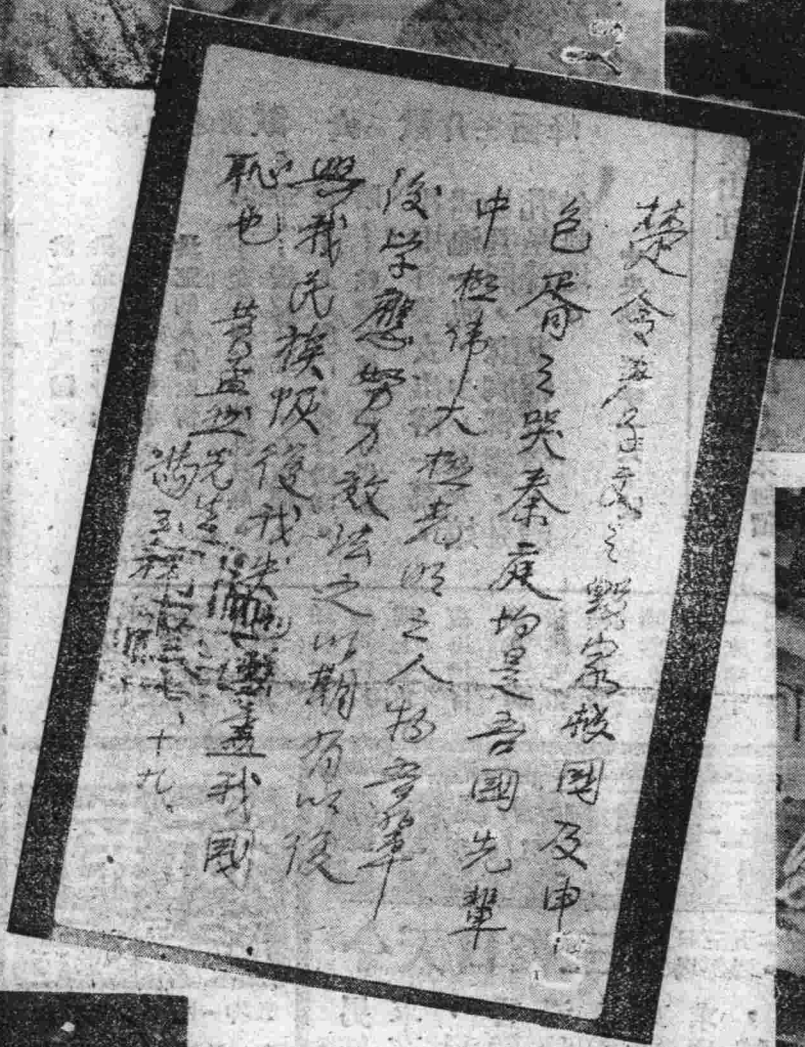 楚令尹子文之毀家救國及申
包胥之哭秦庭均是吾國先輩
中極偉大極光明之人物吾輩
後學應努力效法之以期有以復
興我民族恢復我失地湔雪我國
恥也
黃孟 先生
馮玉祥 七、十九、